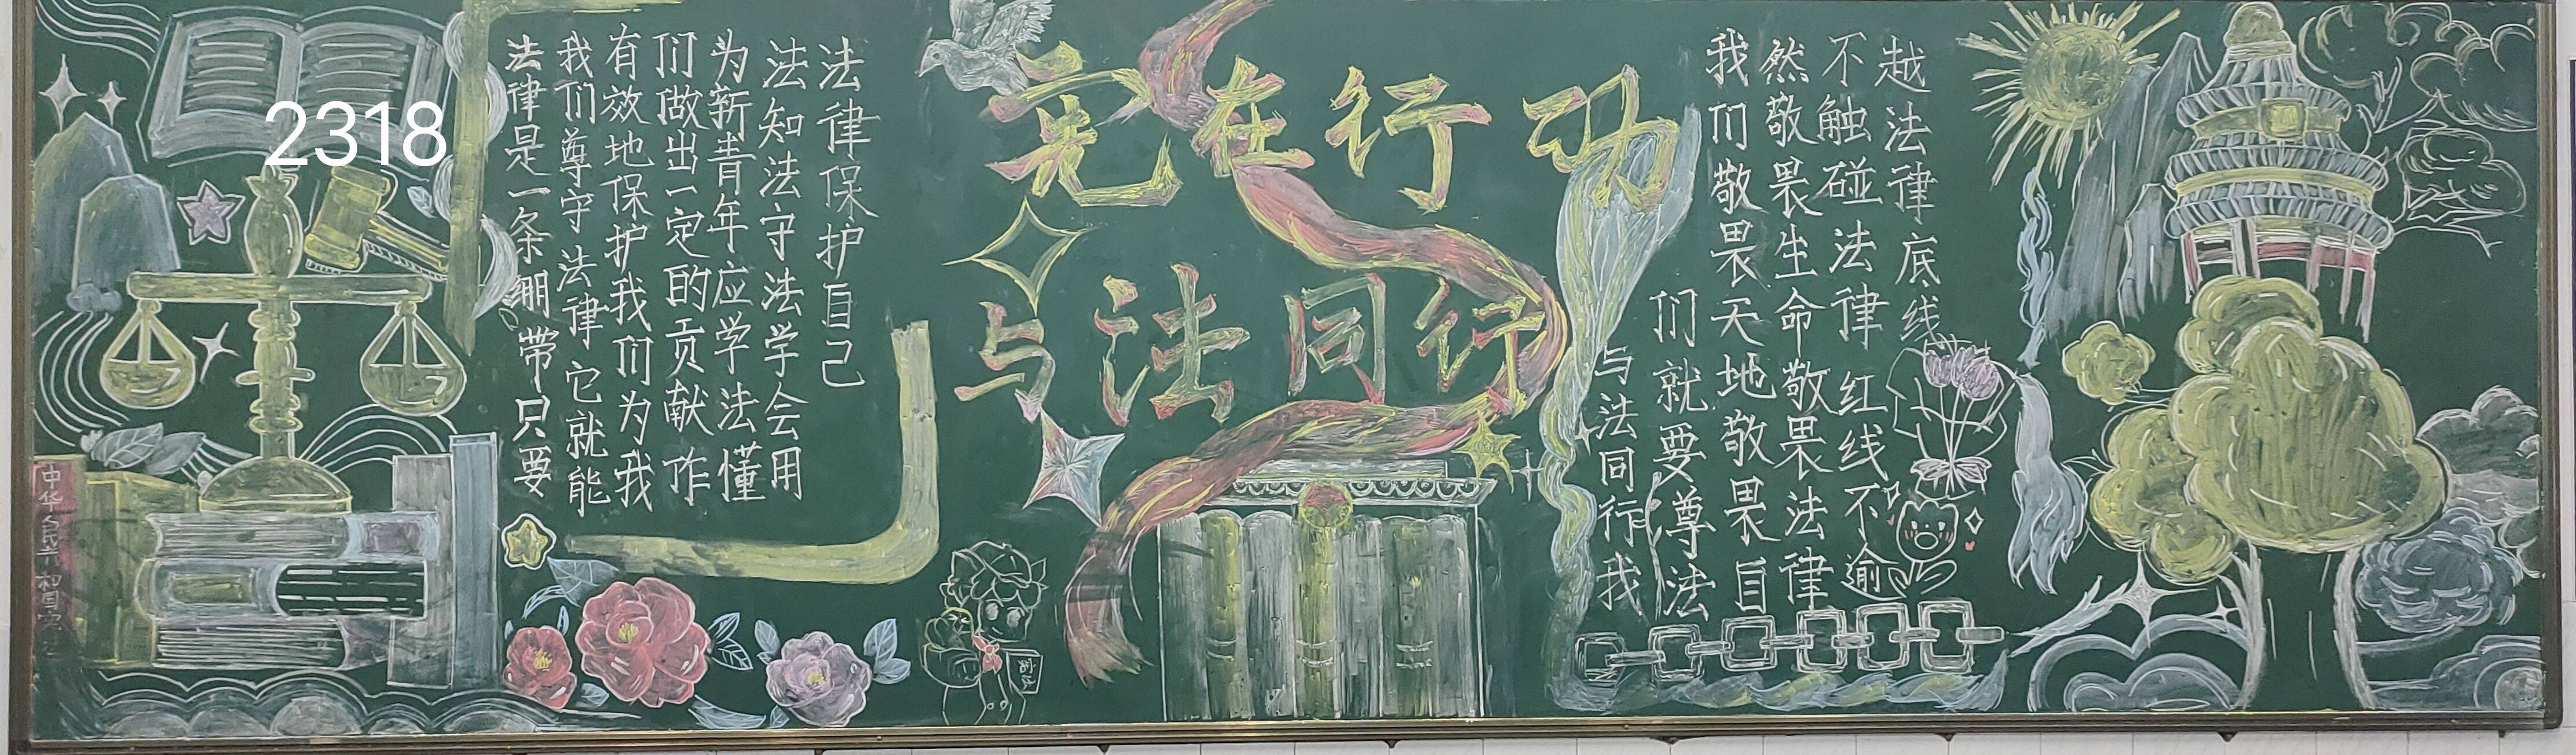 2318
中华人民共和国宪法
法律是一条绷带只要
我们尊守法律它就能
有效地保护我们为我
们做出一定的贡献作
为新青年应学法懂
法知法守法学会用
法律保护自己
宪在行动
与法同行
与法同行我
们就要尊法
我们敬畏天地敬畏自
然敬畏生命敬畏法律
不触碰法律红线不逾
越法律底线